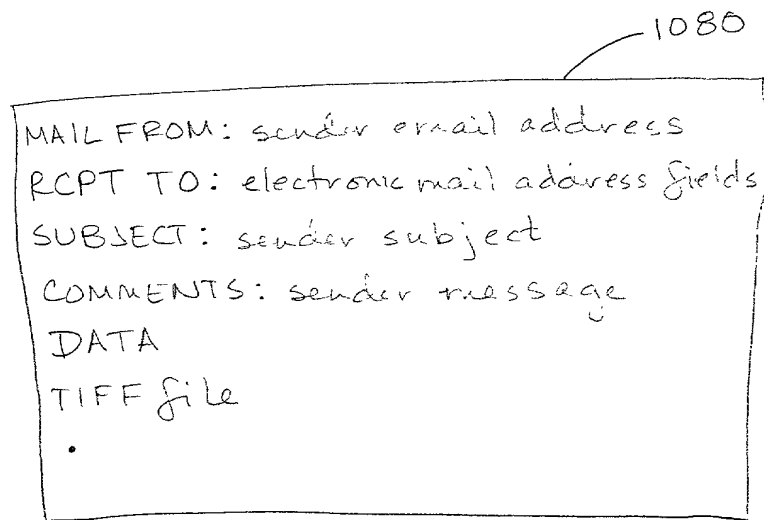 1080
MAIL FROM: sender email address
RCPT TO: electronic mail address fields
SUBJECT: sender subject
COMMENTS: sender message
DATA
TIFF file
.